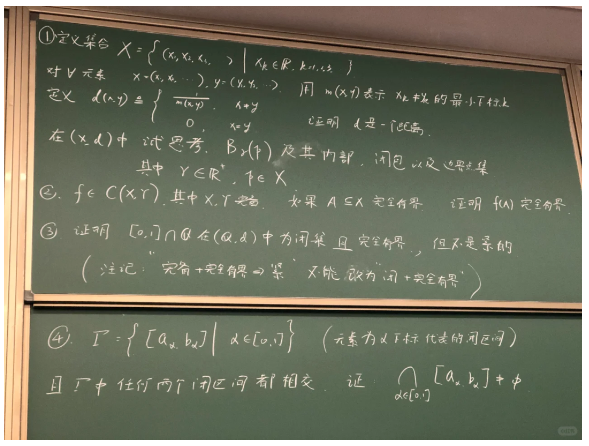 ① 定义集合 X = { (x₁, x₂, x₃, ) | xₖ ∈ ℝ, k=1,2,3, }
对∀元素 x=(x₁, x₂, ⋯), y=(y₁, y₂, ⋯). 用 m(x,y) 表示 xₖ≠yₖ 的最小下标k
定义 d(x,y) ≜ { 1/m(x,y), x≠y
0, x=y 证明 d是一个距离.
在(X,d)中 试思考. Bᵣ(p) 及其内部, 闭包以及边界点集
其中 r∈ℝ⁺, p∈X
②. f∈C(X,Y). 其中X,Y完备. 如果 A⊆X 完全有界 证明 f(A) 完全有界.
③ 证明 [0,1]∩ℚ 在(ℚ,d)中为闭集且完全有界, 但不是紧的
(注记: "完备+完全有界⇔紧" 不能改为 "闭+完全有界")
④. Γ = { [aα, bα] | α∈[0,1] } (元素为α下标代表的闭区间)
且Γ中任何两个闭区间都相交. 证 ⋂α∈[0,1] [aα, bα] ≠ φ